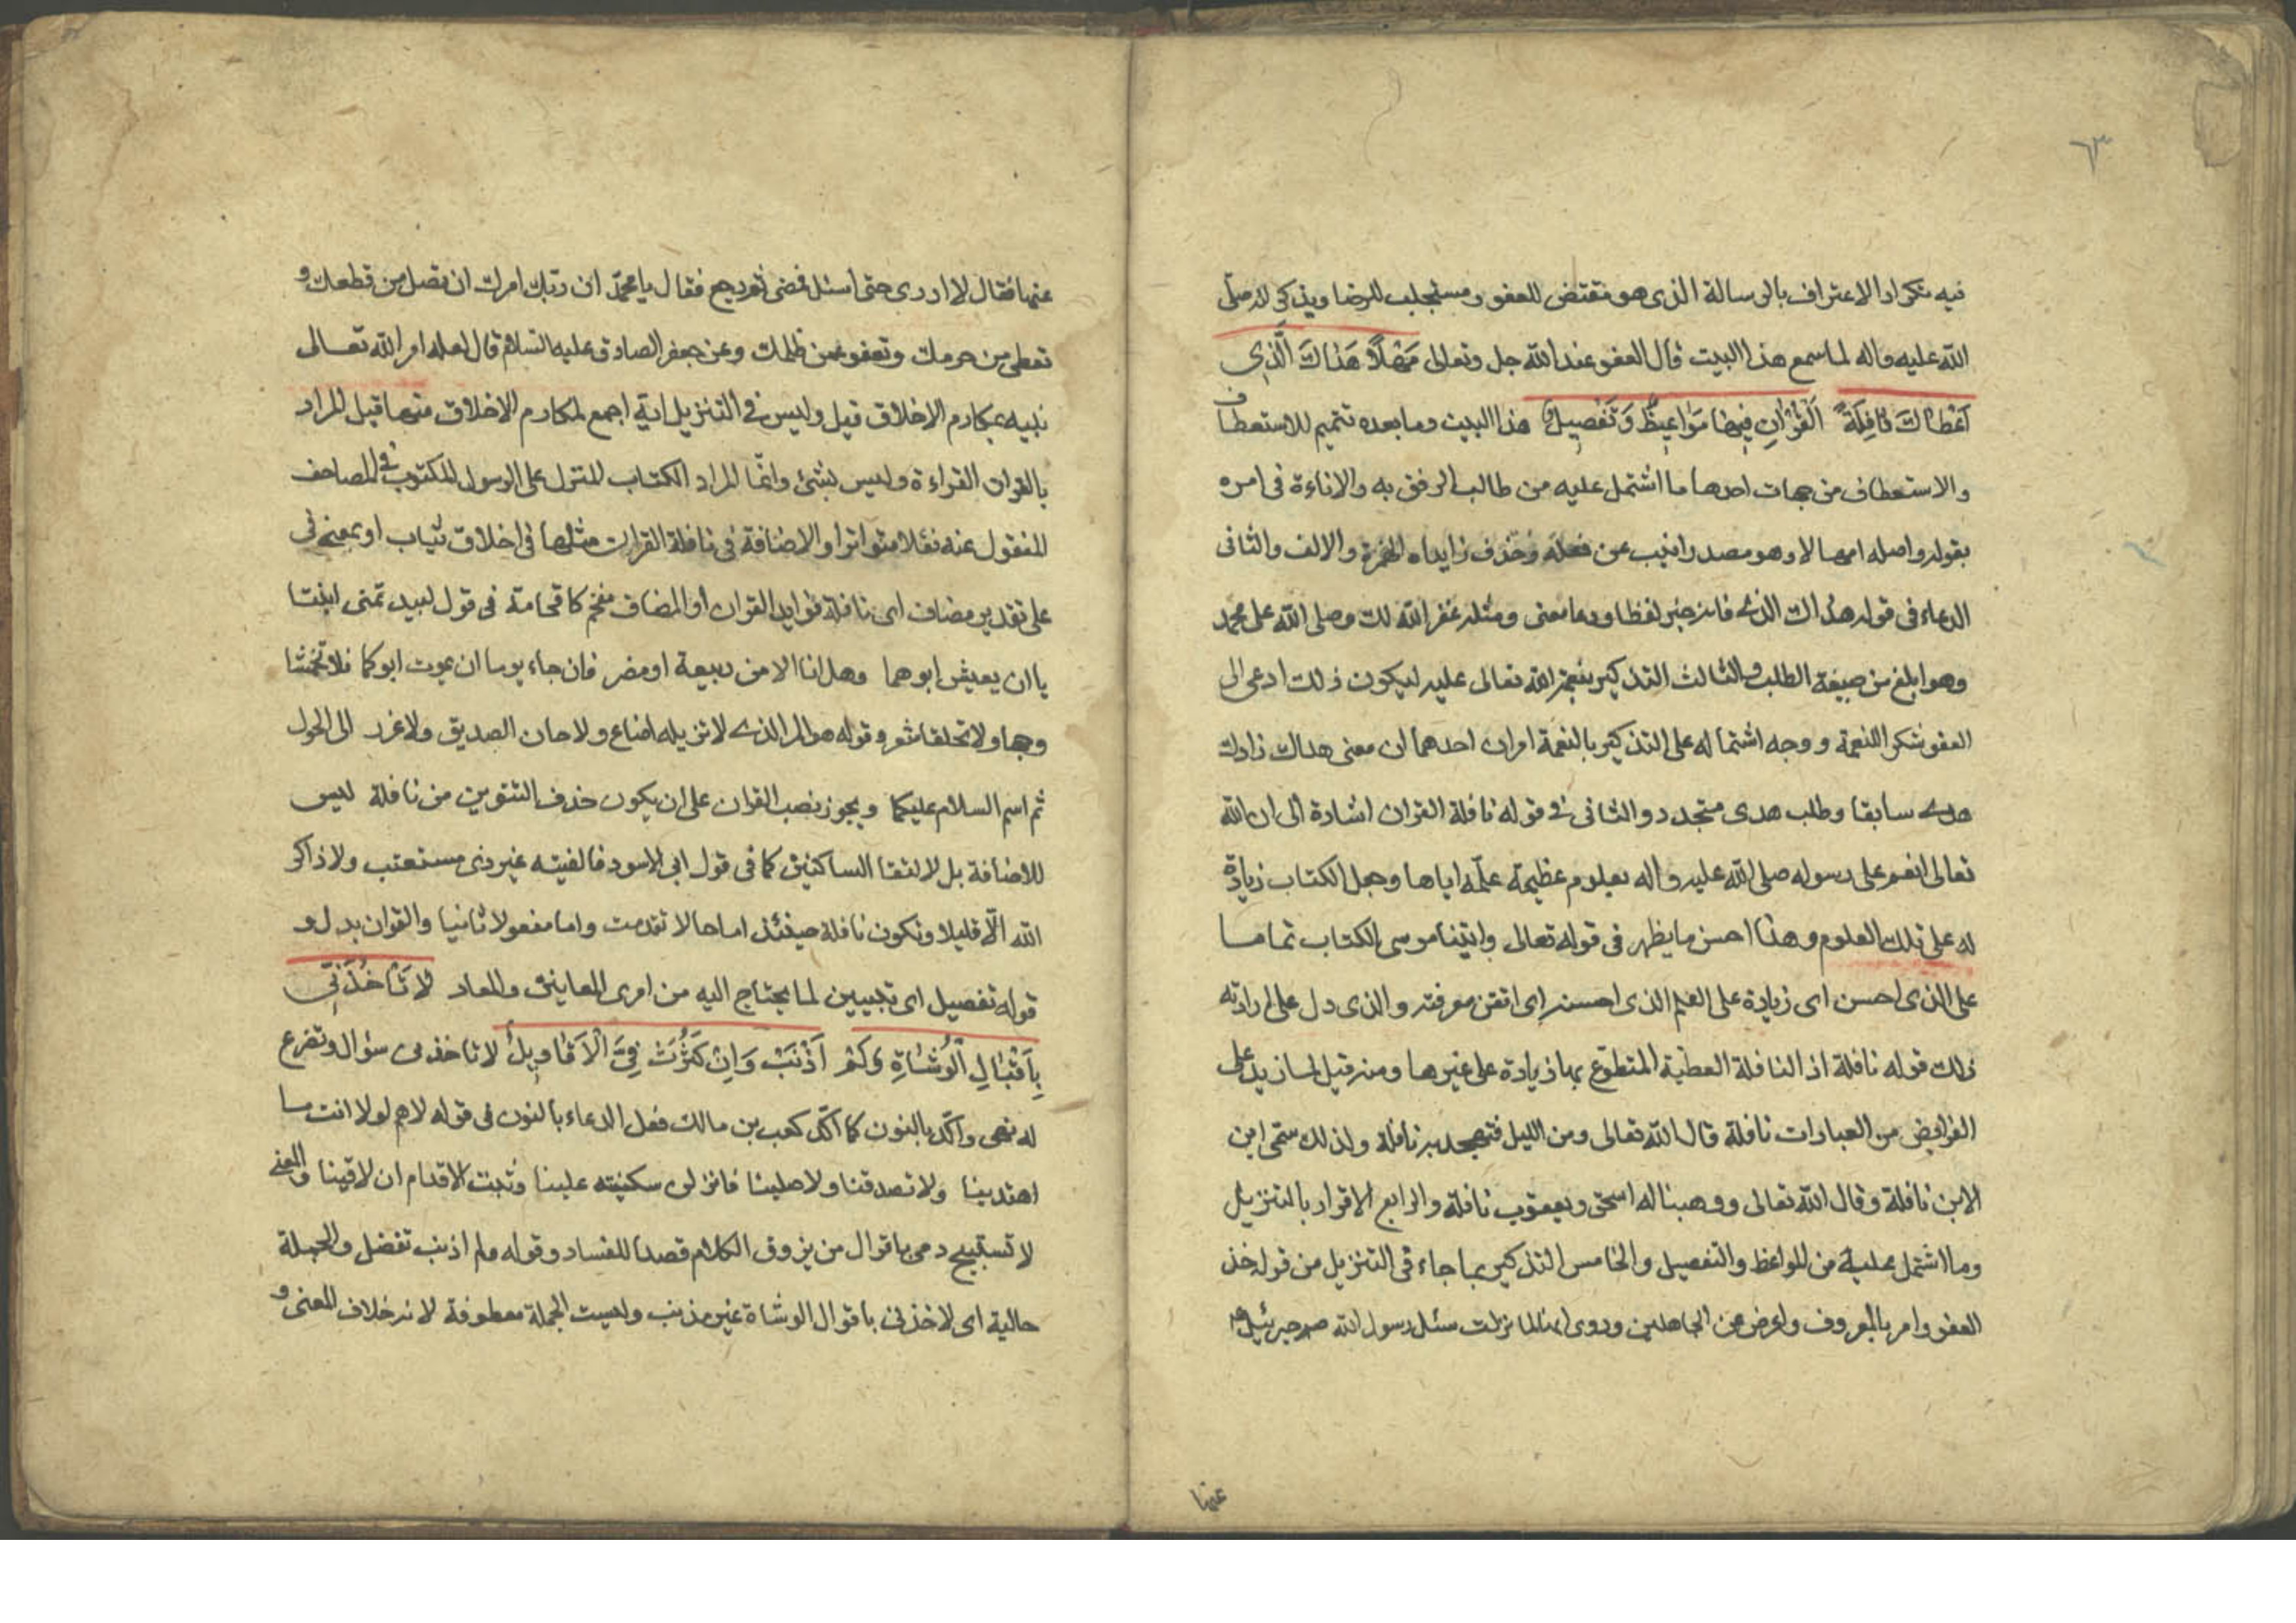 ٦٣
فيه تكرار الاعتراف بالرسالة الذى هو مقتض للعفو ومستجلب للرضا ويذكر انه صلى
الله عليه واله لما سمع هذا البيت قال العفو عند الله جل وتعالى مَهْلًا هَدَاكَ الَّذِي
اَعْطَاكَ نَافِلَةَ الْقُرْاٰنِ فِيهَا مَوَاعِيظٌ وَتَفْصِيلُ هذا البيت وما بعده تتميم للاستعطاف
والاستعطاف من جهات احدها ما اشتمل عليه من طالب الرفق به والاناءة فى امره
بقوله واصله امهالا وهو مصدر انيب عن فعله وحذف زايداه الهمزة والالف والثانى
الدعاء فى قوله هداك الذى فانه خبر لفظا ودعا معنى ومثله غفر الله لك وصلى الله على محمد
وهو ابلغ من صيغة الطلب والثالث التذكير بنعمة الله تعالى عليه ليكون ذلك ادعى الى
العفو شكرا للنعمة ووجه اشتماله على التذكير بالنعمة امران احدهما ان معنى هداك زادك
هدى سابقا وطلب هدى متجدد والثانى فى قوله نافلة القران اشارة الى ان الله
تعالى انعم على رسوله صلى الله عليه واله بعلوم عظيمة علمه اياها وجعل الكتاب زيادة
له على تلك العلوم وهذا احسن ما يظهر فى قوله تعالى واتينا موسى الكتاب تماما
على الذى احسن اى زيادة على العلم الذى احسنه اى اتقن معرفته والذى دل على ارادته
ذلك قوله نافلة اذ النافلة العطية المتطوع بها زيادة على غيرها ومنه قيل لما زيد على
الفرايض من العبادات نافلة قال الله تعالى ومن الليل فتهجد به نافلة ولذلك سمى ابن
الابن نافلة وقال الله تعالى ووهبنا له اسحق ويعقوب نافلة والرابع الاقرار بالتنزيل
وما اشتمل عليه من المواعظ والتفصيل والخامس التذكير بما جاء فى التنزيل من قوله خذ
العفو وامر بالمعروف واعرض عن الجاهلين وروى انها لما نزلت سئل رسول الله ص جبرئيل ع
عنها
عنها فقال لا ادرى حتى اسئل فمضى ثم رجع فقال يا محمد ان ربك امرك ان تصل من قطعك و
تعطى من حرمك وتعفو عمن ظلمك وعن جعفر الصادق عليه السلام قال لعله امر الله تعالى
نبيه بمكارم الاخلاق قيل وليس فى التنزيل اية اجمع لمكارم الاخلاق منها قيل المراد
بالقران القراءة وليس بشئ وانما المراد الكتاب المنزل على الرسول المكتوب فى المصاحف
المنقول عنه نقلا متواترا والاضافة فى نافلة القران مثلها فى اخلاق ثياب او بمعنى فى
على تقدير مضاف اى نافلة فوايد القران او المضاف مفخم كاقحامه فى قول لبيد تمنى ابنتا
يا ان يعيش ابوهما وهل انا الا من ربيعة او مضر فان جاء يوما ان يموت ابوكما فلا تخمشا
وجها ولا تحلقا شعر وقوله هو المر الذى لا نزيله اضاع ولا خان الصديق ولا غدر الى الحول
ثم اسم السلام عليكما ويجوز نصب القران على ان يكون حذف التنوين من نافلة ليس
للاضافة بل لالتقا الساكنين كما فى قول ابى الاسود فالفيته غير ذى مستعتب ولا ذاكر
الله الا قليلا وتكون نافلة حينئذ اما حالا تقدمت واما مفعولا ثانيا والقران بدل و
قوله تفصيل اى تبيين لما يحتاج اليه من امرى المعاش والمعاد لَا تَأْخُذَنِّي
بِاَقْوَالِ الْوُشَاةِ وَلَمْ اَذْنِبْ وَاِنْ كَثُرَتْ فِيَّ الْاَقَاوِيلُ لا تاخذنى سؤال وتضرع
له نهى واكد بالنون كما اكد كعب بن مالك فعل الدعاء بالنون فى قوله لاهم لولا انت ما
اهتدينا ولا تصدقنا ولا صلينا فانزلن سكينته علينا وثبت الاقدام ان لاقينا والمعنى
لا تستبيح دمى باقوال من يزوق الكلام قصدا للفساد وقوله ولم اذنب تفضل والجملة
حالية اى لا تاخذنى باقوال الوشاة غير مذنب وليست الجملة معطوفة لانه خلاف المعنى و